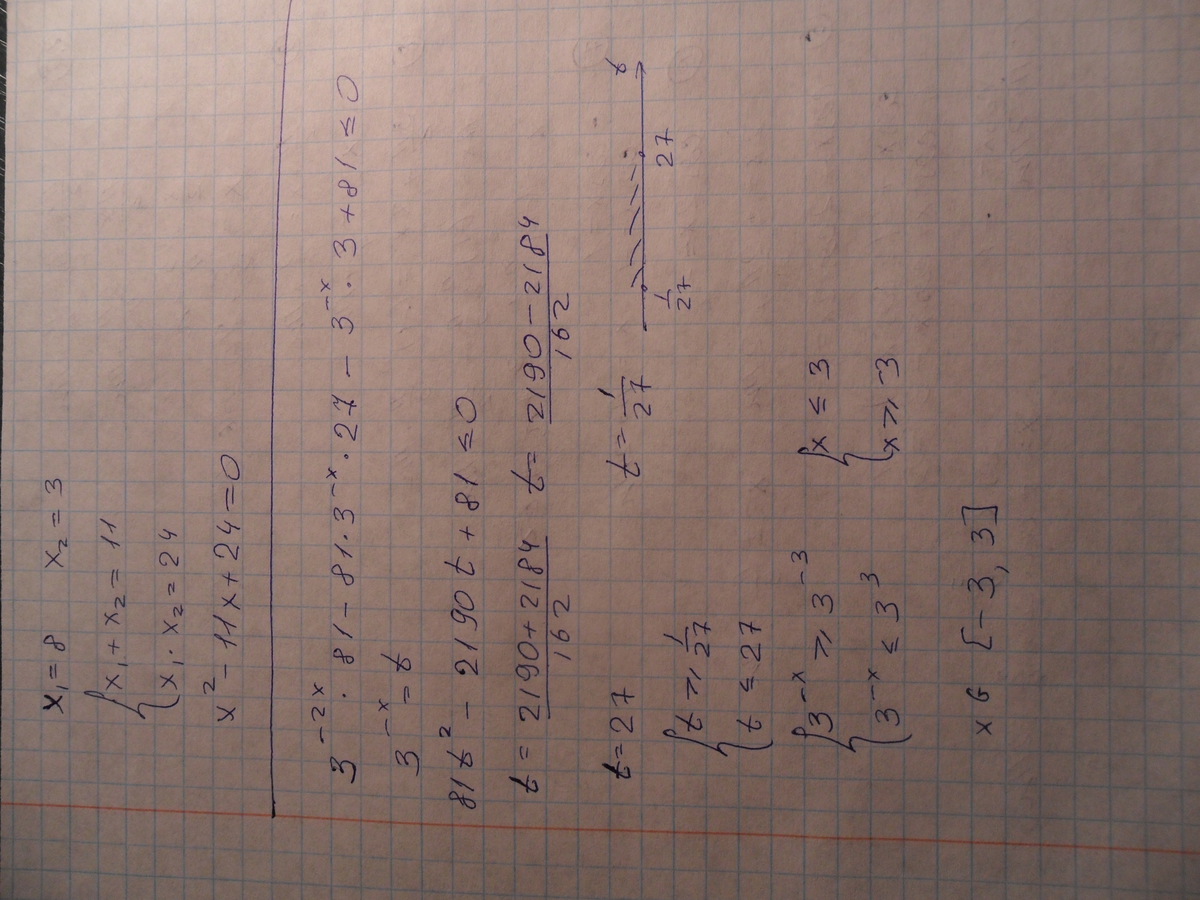 x₁ = 8 x₂ = 3
{ x₁ + x₂ = 11
{ x₁ · x₂ = 24
x² - 11x + 24 = 0
3⁻²ˣ · 81 - 81 · 3⁻ˣ · 27 - 3⁻ˣ · 3 + 81 ≤ 0
3⁻ˣ = t
81t² - 2190t + 81 ≤ 0
t = (2190 + 2184)/162 t = (2190 - 2184)/162
t = 27 t = 1/27 1/27 27 t
{ t ≥ 1/27
{ t ≤ 27
{ 3⁻ˣ ≥ 3⁻³ { x ≤ 3
{ 3⁻ˣ ≤ 3³ { x ≥ -3
x ∈ [-3, 3]